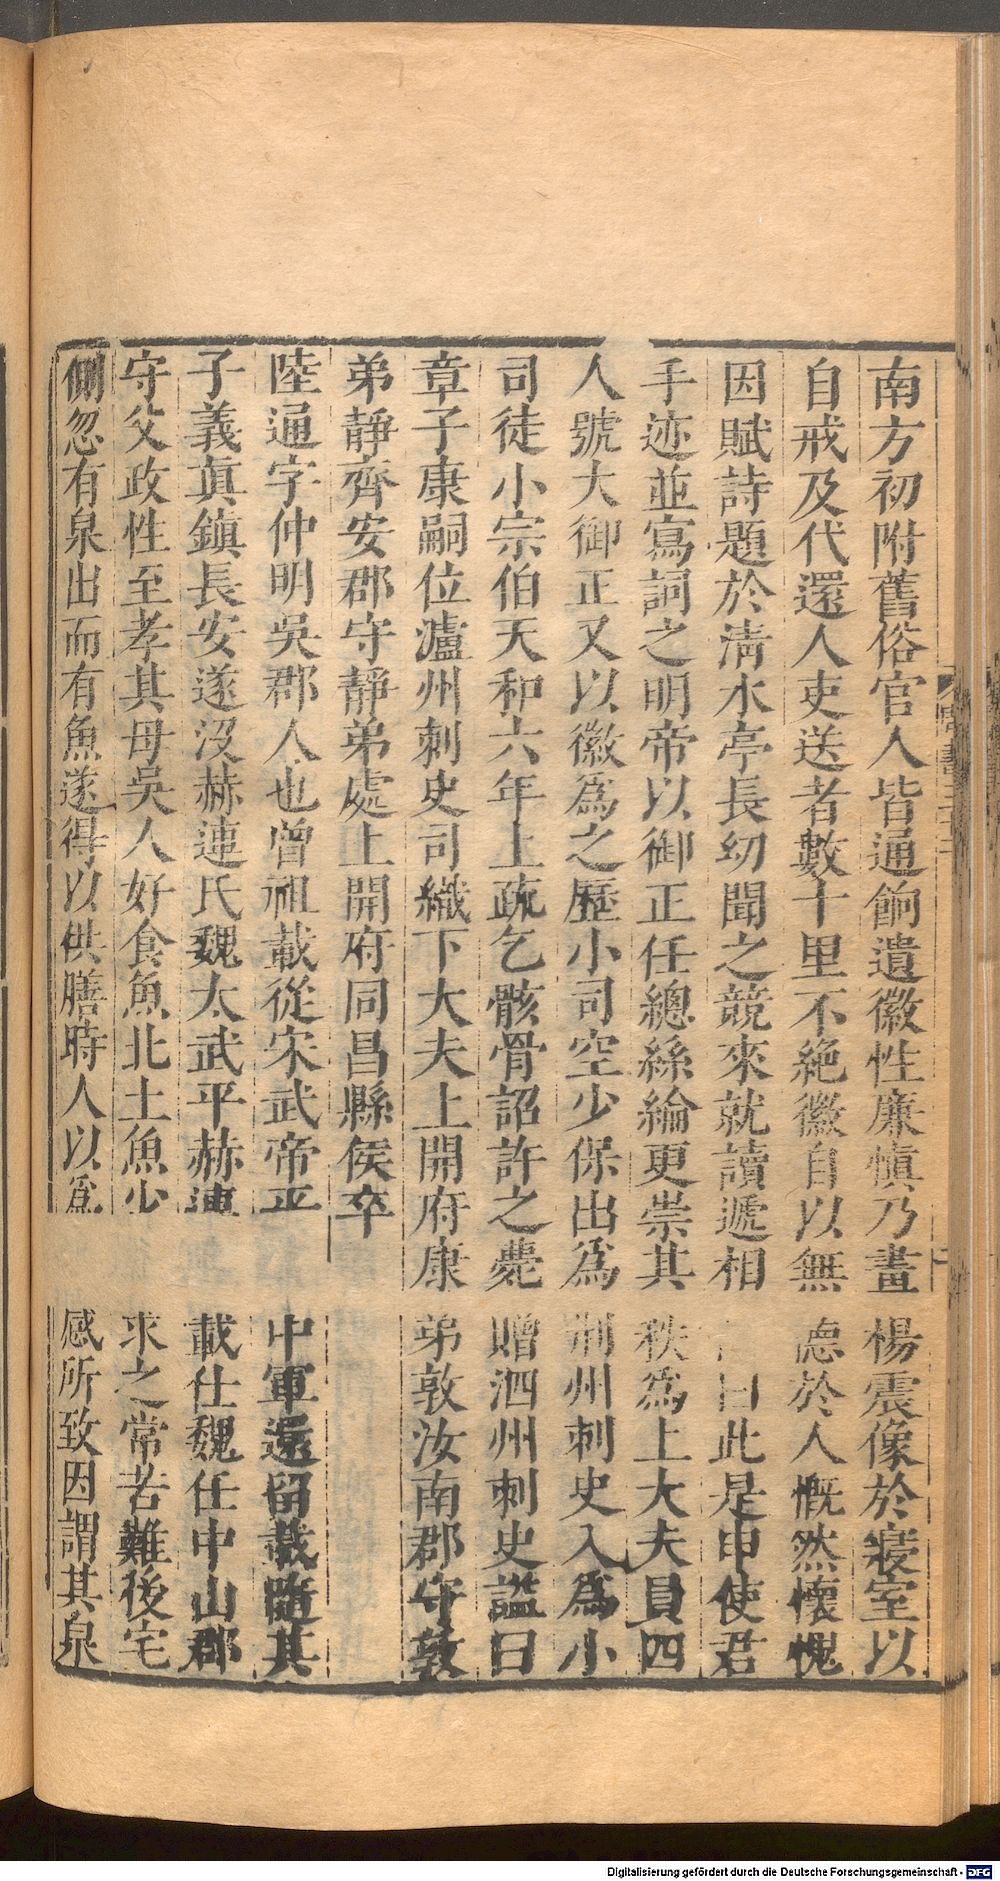 南方初附舊俗官人皆通餉遺徽性廉慎乃畫楊震像於寢室以
自戒及代還人吏送者數十里不絶徽自以無德於人慨然懷愧
因賦詩題於清水亭長幼聞之競來就讀遞相曰此是申使君
手迹並寫詞之明帝以御正任總絲綸更崇其秩爲上大夫員四
人號大御正又以徽爲之歷小司空少保出爲荊州刺史入爲小
司徒小宗伯天和六年上疏乞骸骨詔許之薨贈泗州刺史謚曰
章子康嗣位瀘州刺史司織下大夫上開府康弟敦汝南郡守敦
弟靜齊安郡守靜弟處上開府同昌縣侯卒
陸通字仲明吳郡人也曾祖載從宋武帝平中軍還留載隨其
子義眞鎮長安遂沒赫連氏魏太武平赫連載仕魏任中山郡
守父政性至孝其母吳人好食魚北土魚少求之常苦難後宅
側忽有泉出而有魚遂得以供膳時人以爲感所致因謂其泉
Digitalisierung gefördert durch die Deutsche Forschungsgemeinschaft - DFG